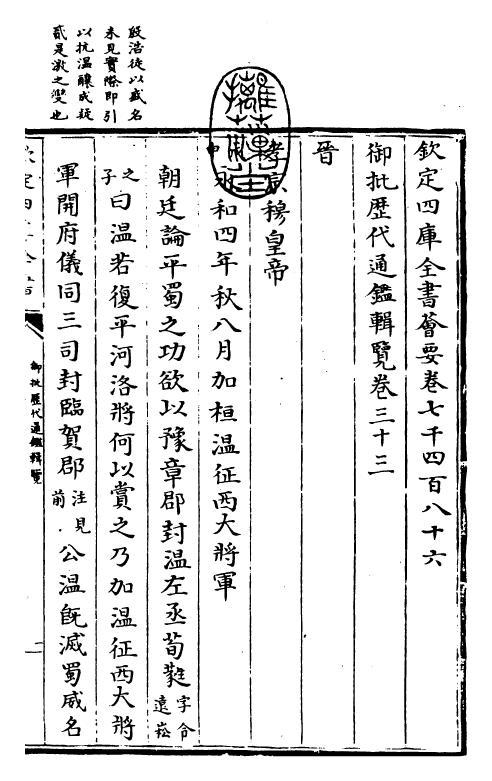 欽定四庫全書薈要卷七千四百八十六
御批歷代通鑑輯覽卷三十三
晉
孝宗穆皇帝
申永和四年秋八月加桓溫征西大將軍
朝廷論平蜀之功欲以豫章郡封溫左丞荀蕤字令遠崧
之子曰溫若復平河洛將何以賞之乃加溫征西大將
軍開府儀同三司封臨賀郡注見前.公溫旣滅蜀威名
御批歷代通鑑輯覽
二
殷浩徒以盛名
未見實際即引
以抗溫釀成疑
貳是激之變也